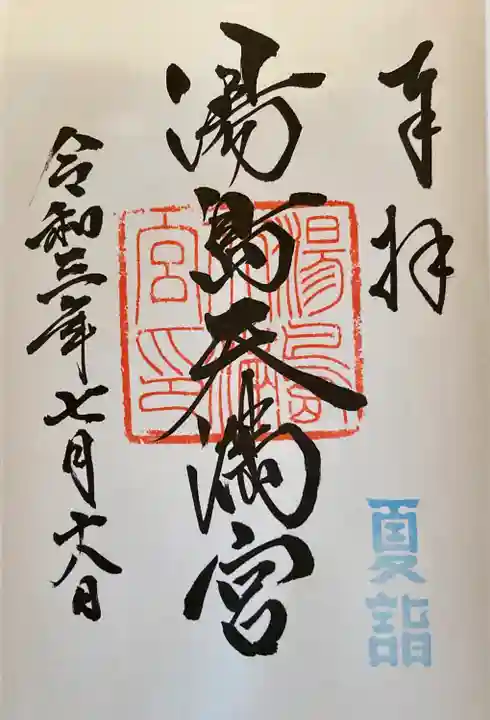 奉拝
夏詣
湯島天満宮
湯島天満宮印
令和三年七月十八日